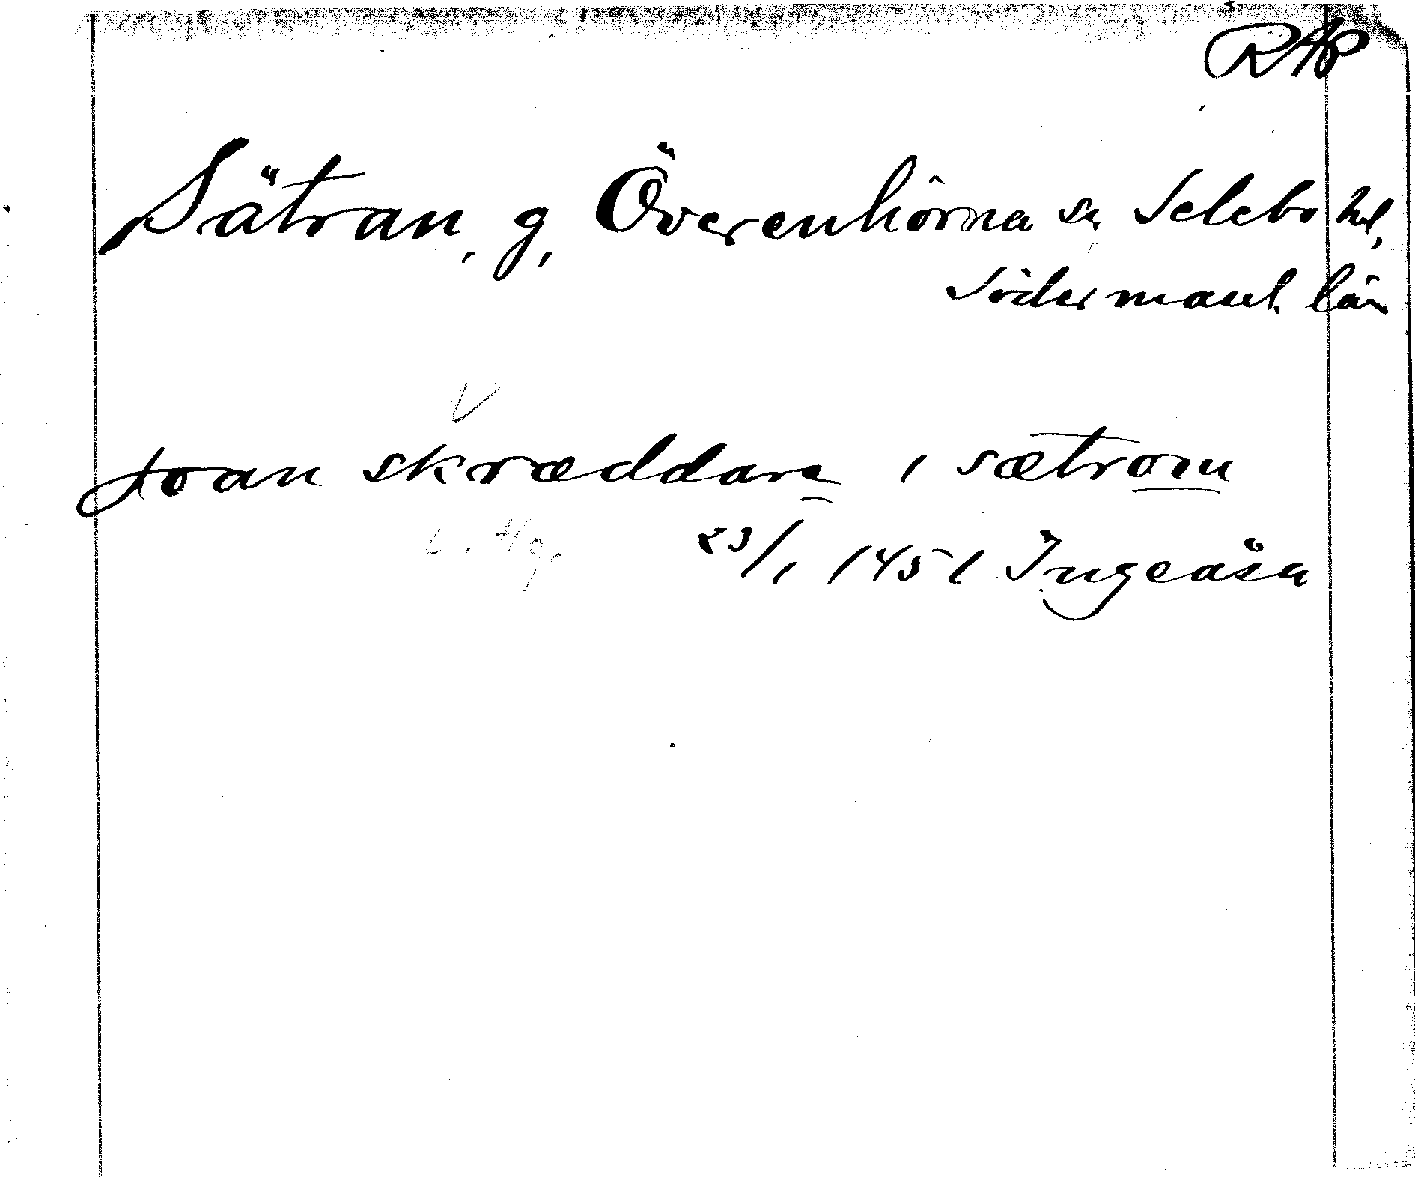 RAP
Sätran, g, Överenhörna sn Selebo hd,
Södermanl. län
Joan skræddare i sætrom
23/1 1451 Ingeåsa